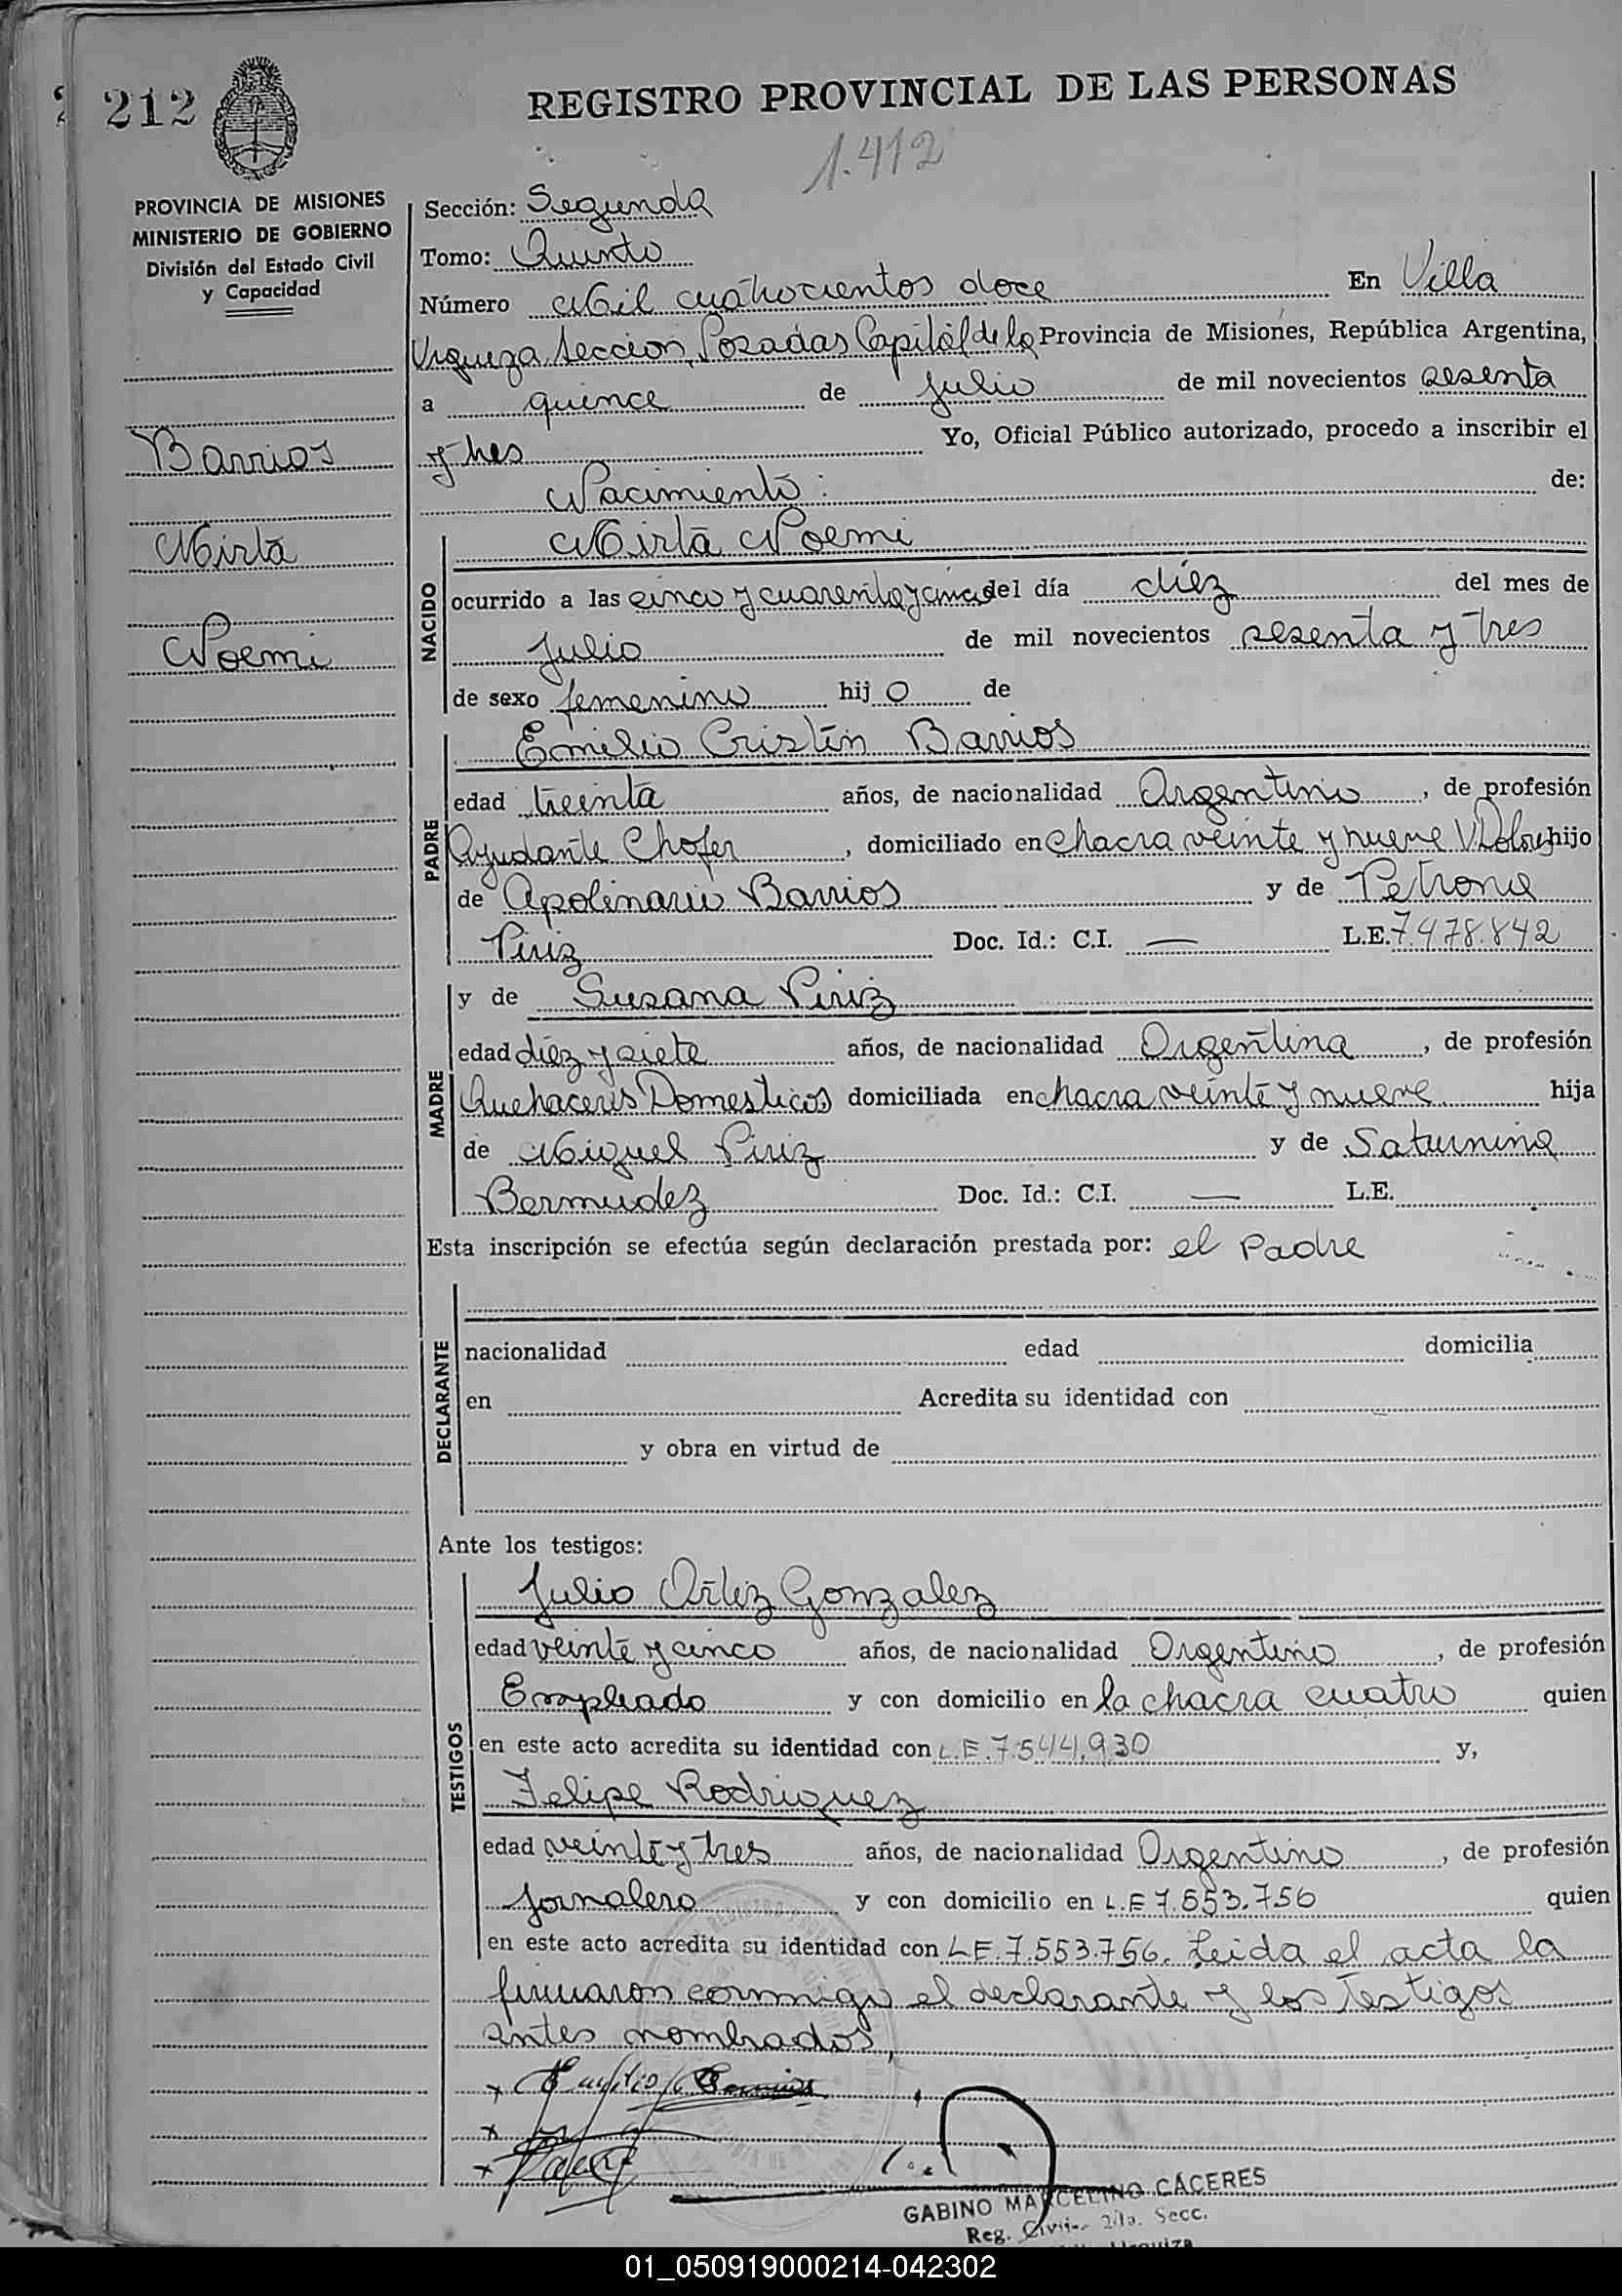 212
REGISTRO PROVINCIAL DE LAS PERSONAS
1.412
PROVINCIA DE MISIONES
MINISTERIO DE GOBIERNO
División del Estado Civil
y Capacidad
Barrios
Mirta
Noemi
Sección: Segunda
Tomo: Quinto
Número Mil cuatrocientos doce En Villa
Urquiza Seccion, Posadas Capital de la Provincia de Misiones, República Argentina,
a quince de Julio de mil novecientos sesenta
y tres Yo, Oficial Público autorizado, procedo a inscribir el
Nacimiento: de:
NACIDO
Mirta Noemi
ocurrido a las cinco y cuarenta y cinco del día diez del mes de
Julio de mil novecientos sesenta y tres
de sexo femenino hij o de
PADRE
Emilio Cristin Barrios
edad treinta años, de nacionalidad Argentino, de profesión
Ayudante Chofer, domiciliado en chacra veinte y nueve V. Dolores hijo
de Apolinario Barrios y de Petrona
Piriz Doc. Id.: C.I. — L.E. 7.478.842
MADRE
y de Susana Piriz
edad diez y siete años, de nacionalidad Argentina, de profesión
Quehaceres Domesticos domiciliada en chacra veinte y nueve hija
de Miguel Piriz y de Saturnina
Bermudez Doc. Id.: C.I. — L.E.
Esta inscripción se efectúa según declaración prestada por: el Padre
DECLARANTE
nacionalidad edad domicilia
en Acredita su identidad con
y obra en virtud de
Ante los testigos:
TESTIGOS
Julio Ortiz Gonzalez
edad veinte y cinco años, de nacionalidad Argentino, de profesión
Empleado y con domicilio en la chacra cuatro quien
en este acto acredita su identidad con L.E. 7.544.930 y,
Felipe Rodriguez
edad veinte y tres años, de nacionalidad Argentino, de profesión
Jornalero y con domicilio en L.E 7.553.756 quien
en este acto acredita su identidad con L.E. 7.553.756. Leida el acta la
firmaron conmigo el declarante y los testigos
antes nombrados,
GABINO MARCELINO CÁCERES
Reg. Civil 2da. Secc.
01_050919000214-042302